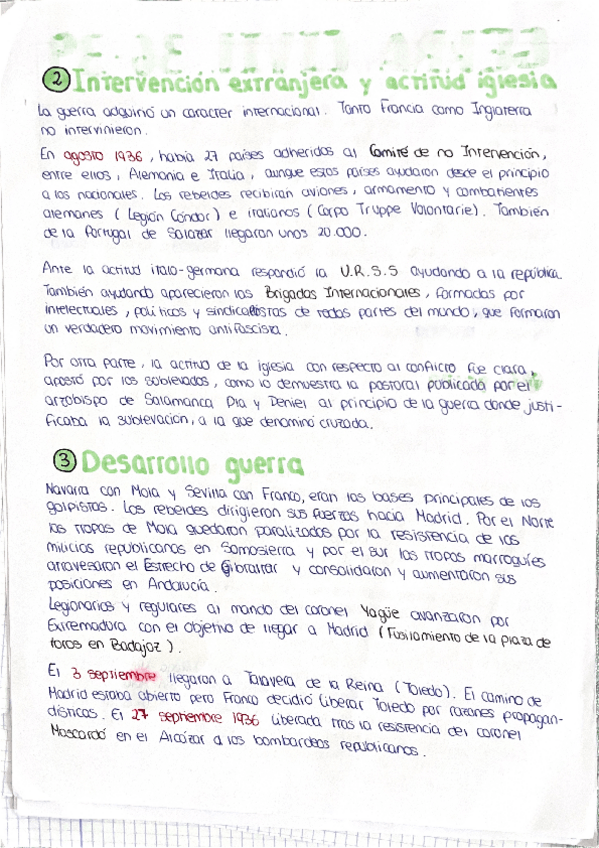 ② Intervención extranjera y actitud iglesia
La guerra adquirió un caracter internacional. Tanto Francia como Inglaterra
no intervinieron.
En agosto 1936, había 27 países adheridos al Comité de no Intervención,
entre ellos, Alemania e Italia, aunque estos países ayudaron desde el principio
a los nacionales. Los rebeldes recibiran aviones, armamento y combatientes
alemanes (Legión Cóndor) e italianos (Corpo Truppe Volontarie). También
de la Portugal de Salazar llegaron unos 20.000.
Ante la actitud italo-germana respondió la U.R.S.S ayudando a la república.
También ayudando aparecieron las Brigadas Internacionales, formadas por
intelectuales, políticos y sindicalistas de todas partes del mundo, que formaron
un verdadero movimiento antifascista.
Por otra parte, la actitud de la iglesia con respecto al conflicto fue clara,
apostó por los sublevados, como lo demuestra la pastoral publicada por el
arzobispo de Salamanca Pla y Deniel al principio de la guerra donde justi-
ficaba la sublevación, a la que denominó cruzada.
③ Desarrollo guerra
Navarra con Mola y Sevilla con Franco, eran las bases principales de los
golpistas. Los rebeldes dirigieron sus fuerzas hacia Madrid. Por el Norte
las tropas de Mola quedaron paralizadas por la resistencia de las
milicias republicanas en Somosierra y por el sur las tropas marroquíes
atravesaron el Estrecho de Gibraltar y consolidaron y aumentaron sus
posiciones en Andalucía.
Legionarios y regulares al mando del coronel Yagüe avanzaron por
Extremadura con el objetivo de llegar a Madrid (Fusilamiento de la plaza de
toros en Badajoz).
El 3 septiembre llegaron a Talavera de la Reina (Toledo). El camino de
Madrid estaba abierto pero Franco decidió liberar Toledo por razones propagan-
dísticas. El 27 septiembre 1936 liberada tras la resistencia del coronel
Moscardó en el Alcázar a los bombardeos republicanos.